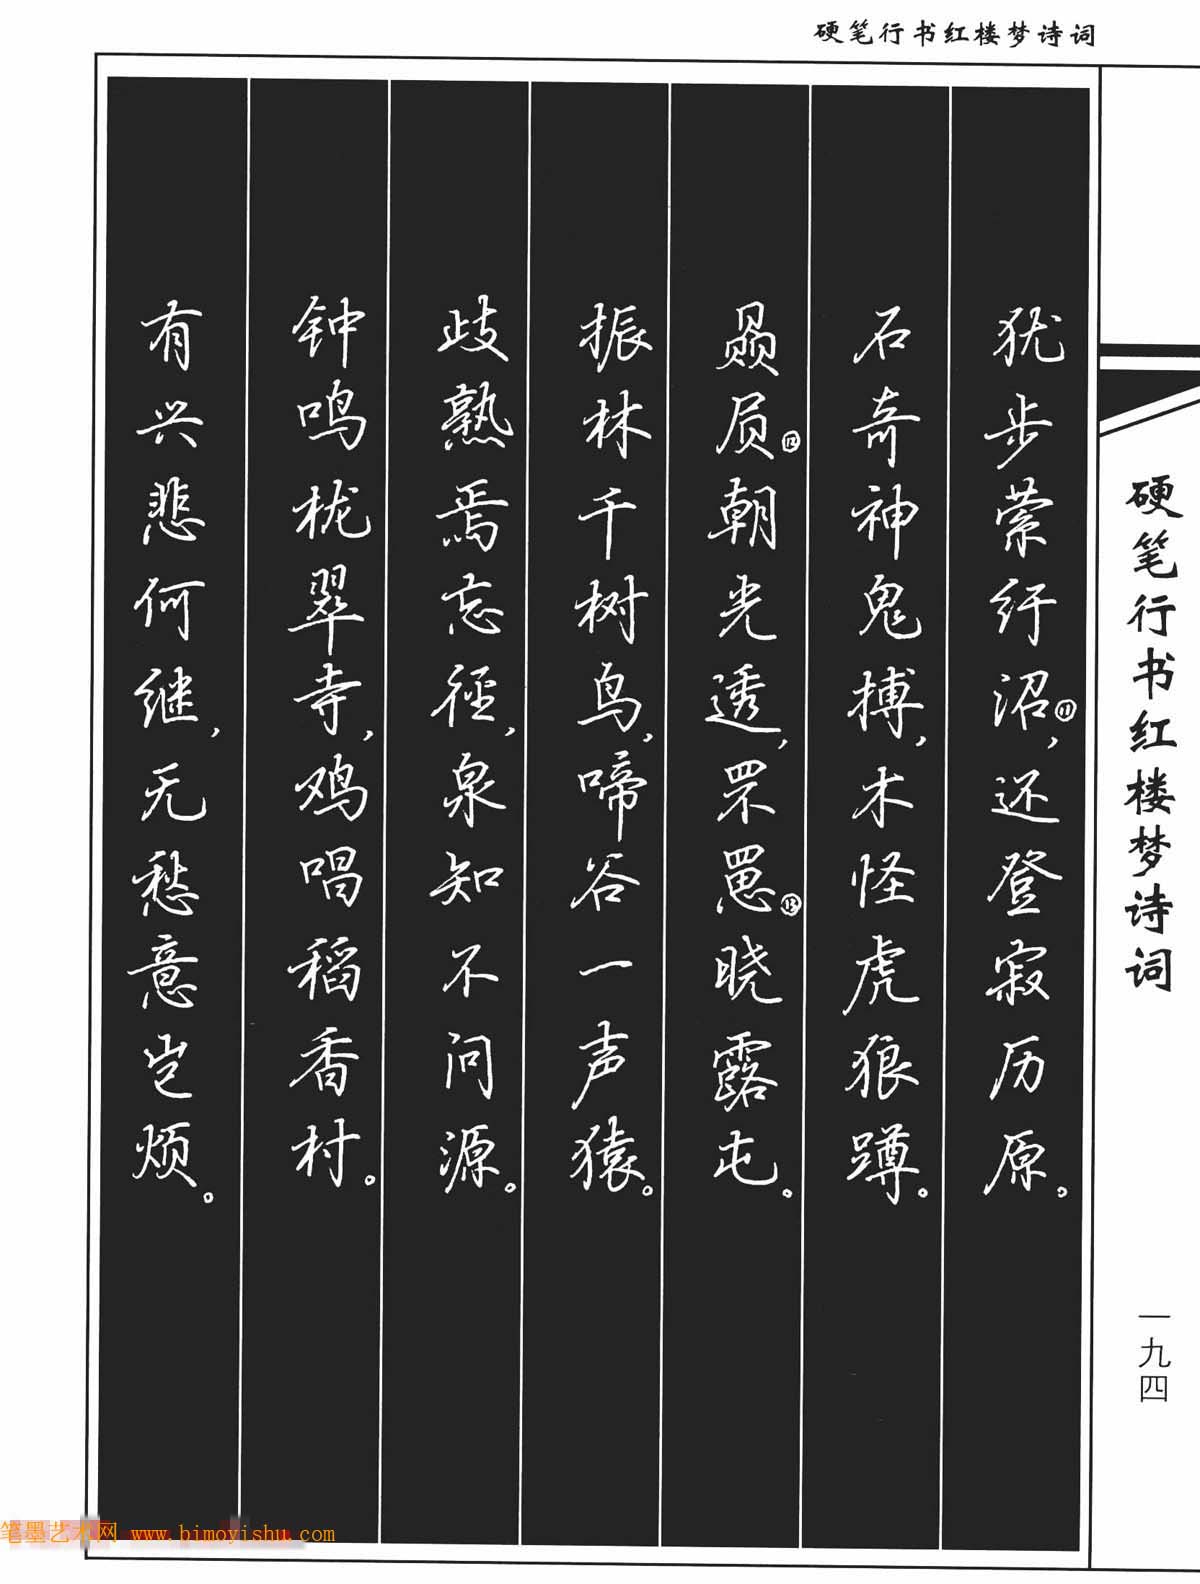 硬笔行书红楼梦诗词
硬笔行书红楼梦诗词
一九四
犹步萦纡沼⑪，还登寂历原。
石奇神鬼搏，木怪虎狼蹲。
赑屃⑫朝光透，罘罳⑬晓露屯。
振林千树鸟，啼谷一声猿。
歧熟焉忘径，泉知不问源。
钟鸣栊翠寺，鸡唱稻香村。
有兴悲何继，无愁意岂烦。
笔墨艺术网 www.bimoyishu.com